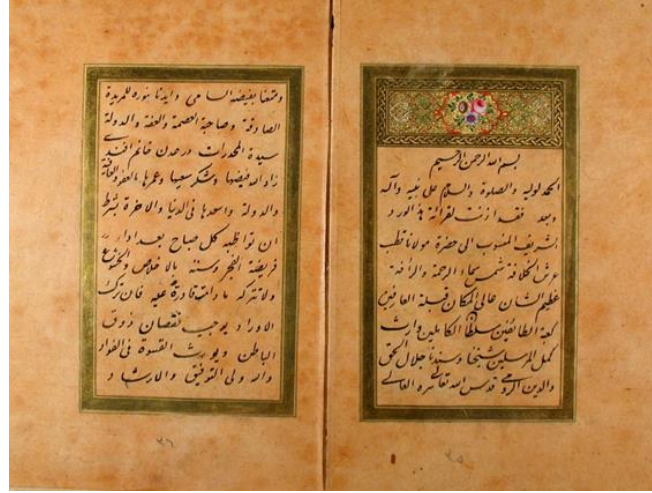 بسم الله الرحمن الرحيم
الحمد لوليه والصلوة والسلام على نبيه وآله
وبعد فقد اذنت لقرائة هذا الورد
الشريف المنسوب الى حضرة مولانا قطب
عرش الخلافة شمس سماء الرحمة والرأفة
عظيم الشان عالى المكان قبلة العارفين
كعبة الطائفين سلطان الكاملين وارث
كمل المرسلين شيخنا وسندنا جلال الحق
والدين الرومى قدس الله تعالى سره العالى
٣٥
ومتعنا بفيضه السامى وايدنا بنوره للمريدة
الصادقة وصاحبة العصمة والعفة والدولة
سيدة المخدرات درعدن خانم افندى
زاد الله فيضها وشكر سعيها وعمرها بالعفو والعافية
والدولة واسعدها فى الدنيا والاخرة بشرط
ان تواظبه كل صباح بعد اداء
فريضة الفجر وسنته بالاخلاص والخشوع
ولا تتركه ما دامت قادرة عليه فان ترك
الاوراد يوجب نقصان ذوق
الباطن ويورث القسوة فى الفواد
والله ولى التوفيق والارشاد
٣٦